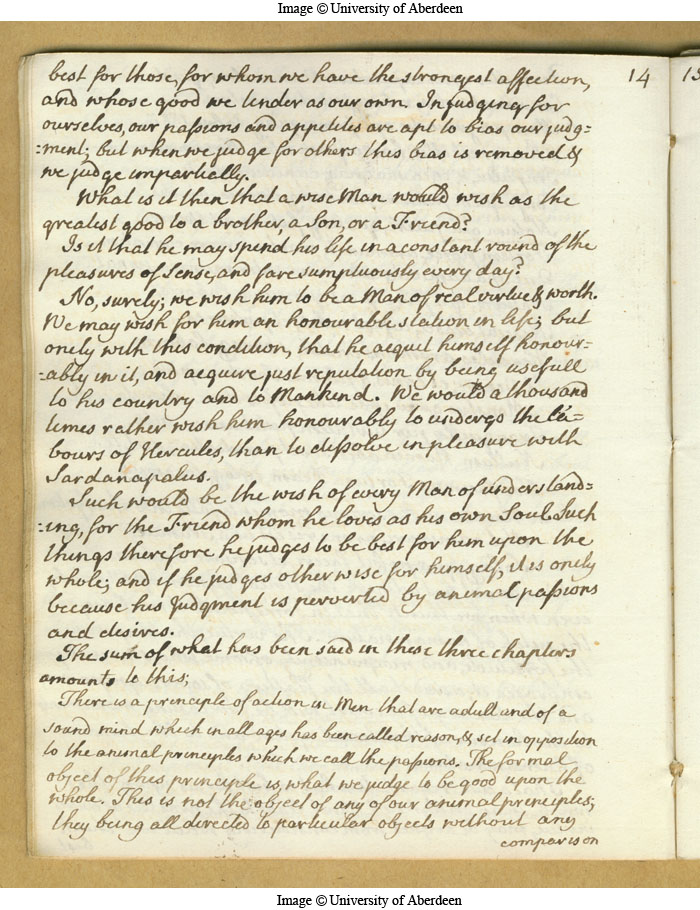 Image © University of Aberdeen
best for those, for whom we have the strongest affection,
14
and whose good we tender as our own. In judging for
ourselves, our passions and appetites are apt to bias our judg=
=ment; but when we judge for others this bias is removed &
we judge impartially.
What is it then that a wise Man would wish as the
greatest good to a brother, a Son, or a Friend?
Is it that he may spend his life in a constant round of the
pleasures of Sense, and fare sumptuously every day?
No, surely; we wish him to be a Man of real virtue & worth.
We may wish for him an honourable station in life; but
onely with this condition, that he acquit himself honour=
=ably in it, and acquire just reputation by being usefull
to his country and to Mankind. We would a thousand
times rather wish him honourably to undergo the la=
bours of Hercules, than to dissolve in pleasure with
Sardanapalus.
Such would be the wish of every Man of understand=
=ing, for the Friend whom he loves as his own Soul. Such
things therefore he judges to be best for him upon the
whole; and if he judges otherwise for himself, it is onely
because his Judgment is perverted by animal passions
and desires.
The sum of what has been said in these three chapters
amounts to this;
There is a principle of action in Men that are adult and of a
sound mind which in all ages has been called reason, & set in opposition
to the animal principles which we call the passions. The formal
object of this principle is, what we judge to be good upon the
whole. This is not the object of any of our animal principles;
they being all directed to particular objects without any
comparison
Image © University of Aberdeen